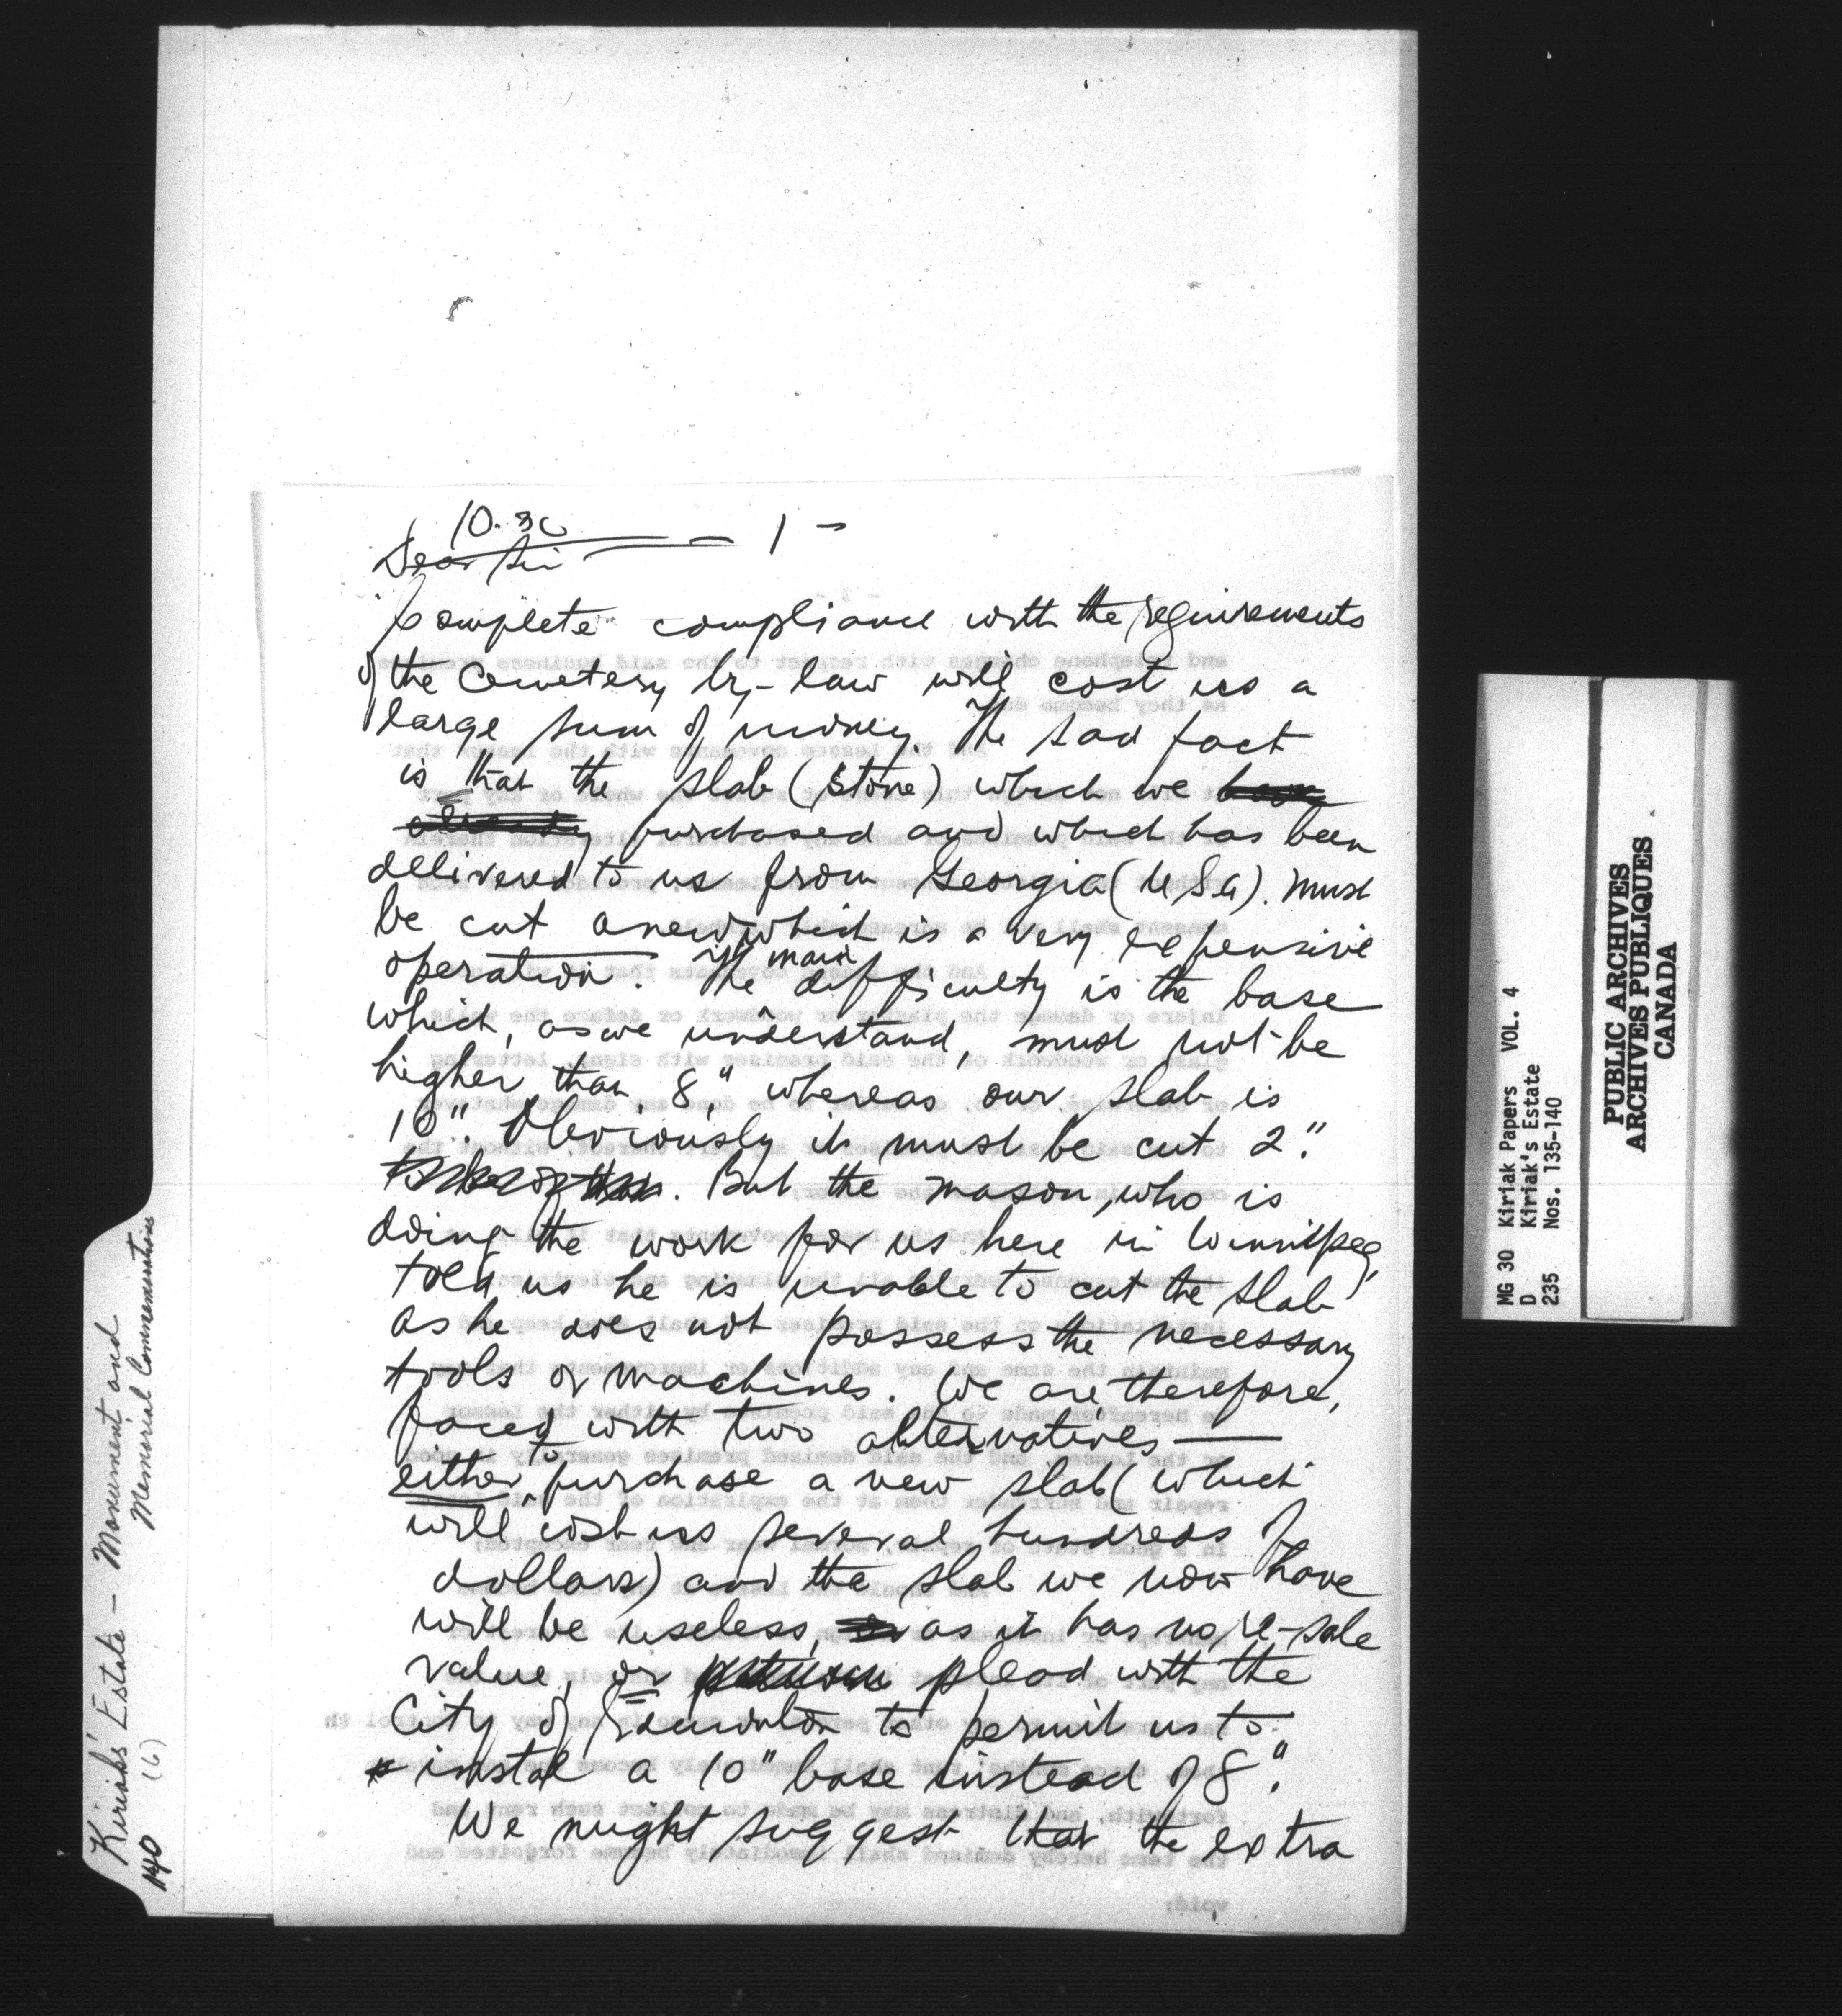 10.30 — 1 —
Dear Sir
Complete compliance with the requirements
of the Cemetery by-law will cost us a
large sum of money. The sad fact
is that the slab (stone) which we have
already purchased and which has been
delivered to us from Georgia (USA). must
be cut anew, which is a very expensive
operation. The main difficulty is the base
which, as we understand, must not be
higher than 8", whereas our slab is
10". Obviously it must be cut 2".
But the mason, who is
doing the work for us here in Winnipeg,
told us he is unable to cut the slab
as he does not possess the necessary
tools or machines. We are, therefore,
faced with two alternatives —
either to purchase a new slab (which
will cost us several hundreds of
dollars) and the slab we now have
will be useless, as it has no re-sale
value, or plead with the
City of Edmonton to permit us to
instal a 10" base instead of 8".
We might suggest that the extra
Kiriak's Estate – Monument and
Memorial Commemorations
140 (6)
MG 30 Kiriak Papers VOL. 4
D Kiriak's Estate
235 Nos. 135-140
PUBLIC ARCHIVES
ARCHIVES PUBLIQUES
CANADA